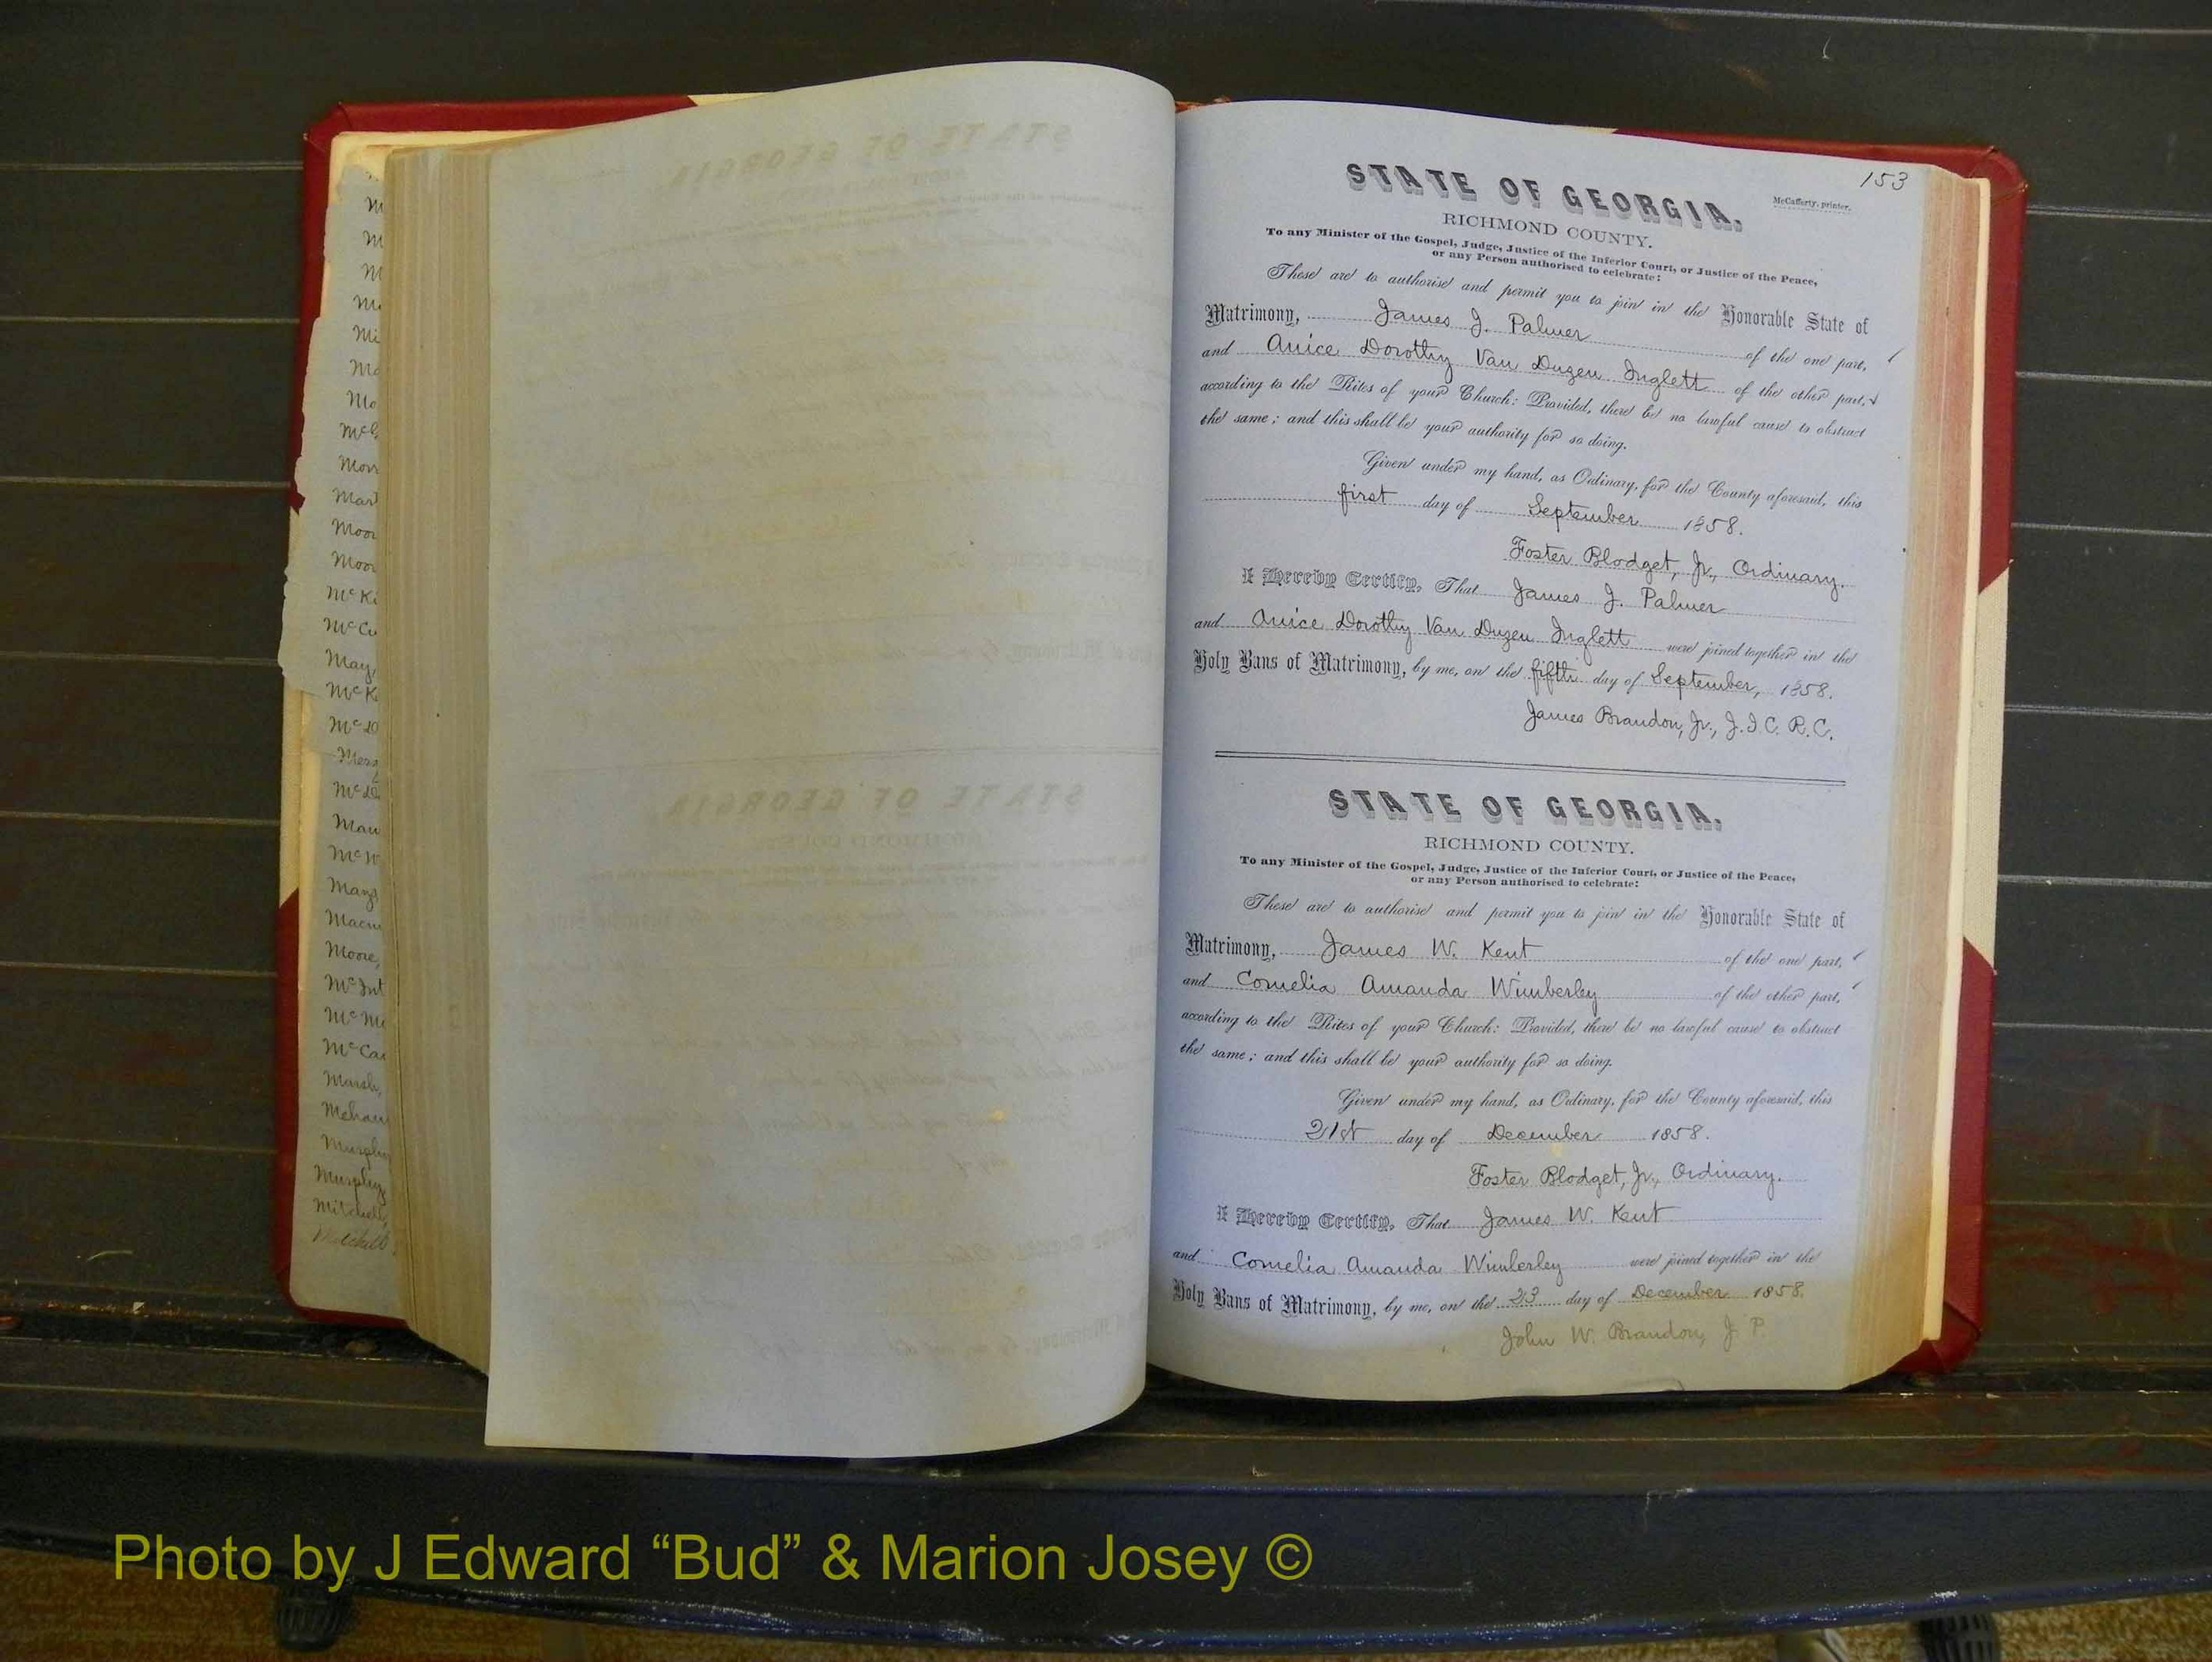 m
m
m
Mi
Ma
Mo
McG
Morr
Mart
Moor
Moor
McKi
McCu
May,
McK
McD
Mcd
Mau
McW
Mays
Macm
Moore,
McInt
McMu
McCa
Marsh,
Mehau
Murphy
Murphy
Mitchell,
Mitchell
153
STATE OF GEORGIA,
McCafferty, printer.
RICHMOND COUNTY.
To any Minister of the Gospel, Judge, Justice of the Inferior Court, or Justice of the Peace,
or any Person authorised to celebrate:
These are to authorise and permit you to join in the Honorable State of
Matrimony, James J. Palmer of the one part,
and Anice Dorothy Van Duzen Inglett of the other part,
according to the Rites of your Church: Provided, there be no lawful cause to obstruct
the same; and this shall be your authority for so doing.
Given under my hand, as Ordinary, for the County aforesaid, this
first day of September 1858.
Foster Blodget, Jr., Ordinary.
I Hereby Certify, That James J. Palmer
and Anice Dorothy Van Duzen Inglett were joined together in the
Holy Bans of Matrimony, by me, on the fifth day of September, 1858.
James Brandon, Jr., J.I.C. R.C.
STATE OF GEORGIA,
RICHMOND COUNTY.
To any Minister of the Gospel, Judge, Justice of the Inferior Court, or Justice of the Peace,
or any Person authorised to celebrate:
These are to authorise and permit you to join in the Honorable State of
Matrimony, James W. Kent of the one part,
and Cornelia Amanda Wimberley of the other part,
according to the Rites of your Church: Provided, there be no lawful cause to obstruct
the same; and this shall be your authority for so doing.
Given under my hand, as Ordinary, for the County aforesaid, this
21st day of December 1858.
Foster Blodget, Jr., Ordinary.
I Hereby Certify, That James W. Kent
and Cornelia Amanda Wimberley were joined together in the
Holy Bans of Matrimony, by me, on the 23 day of December 1858.
John W. Brandon, J. P.
Photo by J Edward “Bud” & Marion Josey ©